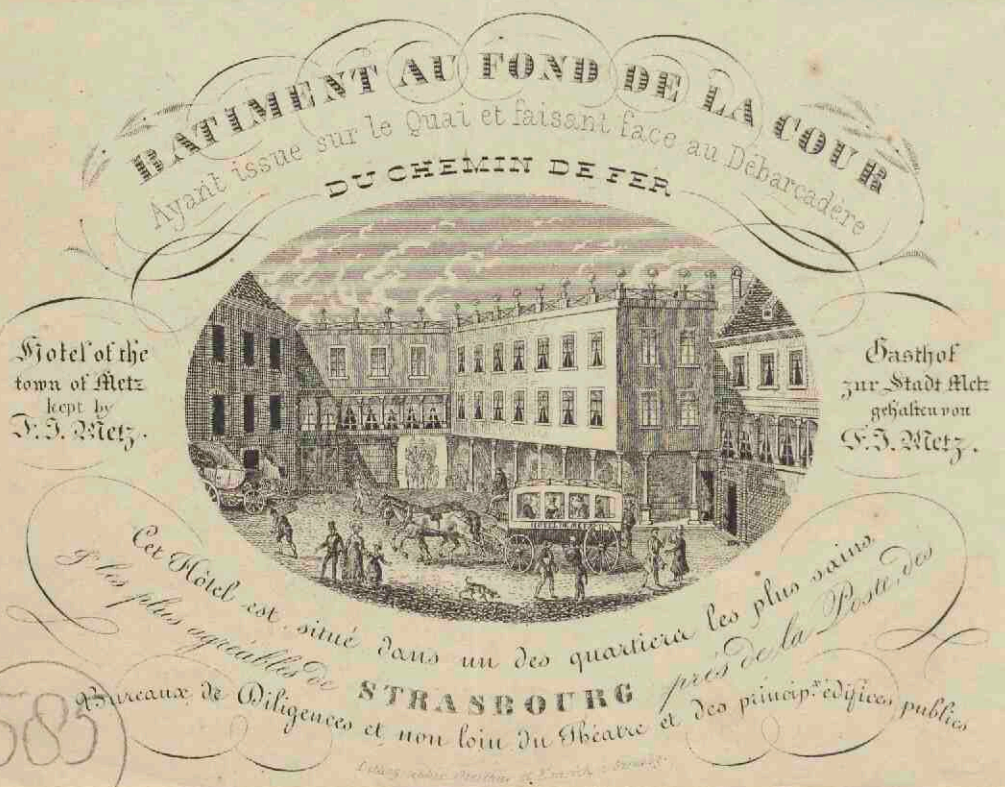 BATIMENT AU FOND DE LA COUR
Ayant issue sur le Quai et faisant face au Débarcadère
DU CHEMIN DE FER
Hotel of the
town of Metz
kept by
F. J. Metz.
Gasthof
zur Stadt Metz
gehalten von
F. J. Metz.
HOTEL DE METZ
Cet Hôtel est situé dans un des quartiers les plus sains
& les plus agréables de STRASBOURG près de la Poste, des
Bureaux de Diligences et non loin du Théatre et des princip.x édifices publics
585